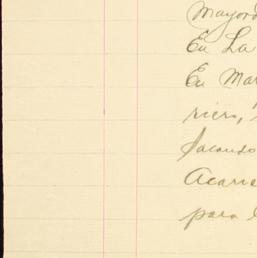 Mayord
En La
En Mar
rien,
sacando
Acarre
para